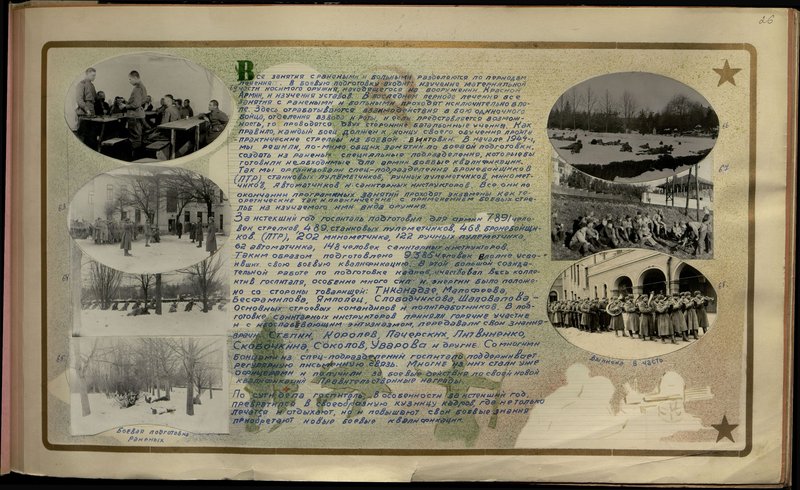 26
Все занятия с ранеными и больными разделяются по периодам
лечения. В боевую подготовку входит изучение материальной
части носимого оружия, находящегося на вооружении Красной
Армии, и изучения уставов. В последнем периоде лечения все
занятия с ранеными и больными проходят исключительно в по-
ле. Здесь отрабатываются взаимодействия в бою одиночного
бойца, отделения взвода и роты, и если представляется возмож-
ность, то проводятся двух сторонние батальонные учения. Как
правило, каждый боец должен к концу своего обучения пройти
практические стрельбы из боевой винтовки. В начале 1944 г.
мы решили, по-мимо общих занятий по боевой подготовки,
создать из раненых специальные подразделения, которые бы
готовили необходимые для армии боевые квалификации.
Так мы организовали спец-подразделения бронебойщиков
(ПТР), станковых пулеметчиков, ручных пулеметчиков, миномет-
чиков, автоматчиков и санитарных инструкторов. Все они по
окончании программных занятий проходят экзамены как те-
оретические так и практические с применением боевых стре-
льб из изучаемого ими вида оружия.
За истекший год госпиталь подготовил для армии 7891 чело-
век стрелков, 489 станковых пулеметчиков, 468 бронебойщи-
ков (ПТР), 202 минометчика, 122 ручных пулеметчика,
62 автоматчика, 148 человек санитарных инструкторов.
Таким образом подготовлено 9385 человек вполне усво-
ивших свою боевую квалификацию. В этой большой созида-
тельной работе по подготовке кадров, участвовал весь колле-
ктив госпиталя, особенно много сил и энергии было положе-
но со стороны товарищей: Тиканадзе, Малофеева,
Бесфамилова, Ямполец, Слободчикова, Шаповалова -
основных строевых командиров и политработников. В под-
готовке санитарных инструкторов приняли горячие участие
и с неослабевающим энтузиазмом, передавали свои знания-
врачи Степин, Королев, Печерских, Литвиненко,
Скобочкина, Соколов, Уварова и другие. Со многими
бойцами из спец-подразделений госпиталь поддерживает
регулярную письменную связь. Многие из них стали уже
офицерами и получили за боевые действия по своей новой
квалификации Правительственные награды.
По сути дела госпиталь, в особенности за истекший год,
превратился в своеобразную кузницу кадров, где не только
лечатся и отдыхают, но и повышают свои боевые знания
приобретают новые боевые квалификации.
Боевая подготовка
раненых
Выписка в часть